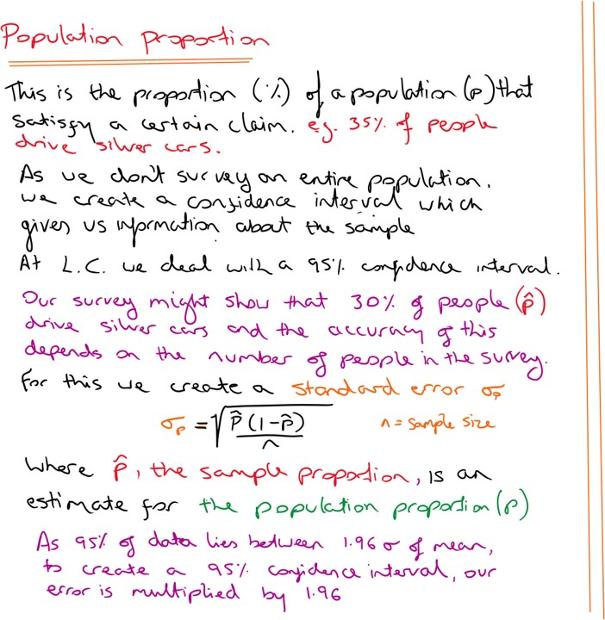 Population proportion
This is the proportion (%) of a population (p) that
satisfy a certain claim. eg. 35% of people
drive silver cars.
As we don't survey an entire population,
we create a confidence interval which
gives us information about the sample
At L.C. we deal with a 95% confidence interval.
Our survey might show that 30% of people (p̂)
drive silver cars and the accuracy of this
depends on the number of people in the survey.
For this we create a standard error σp
σp = √(p̂(1-p̂)/n) n = sample size
where p̂, the sample proportion, is an
estimate for the population proportion (p)
As 95% of data lies between 1.96 σ of mean,
to create a 95% confidence interval, our
error is multiplied by 1.96